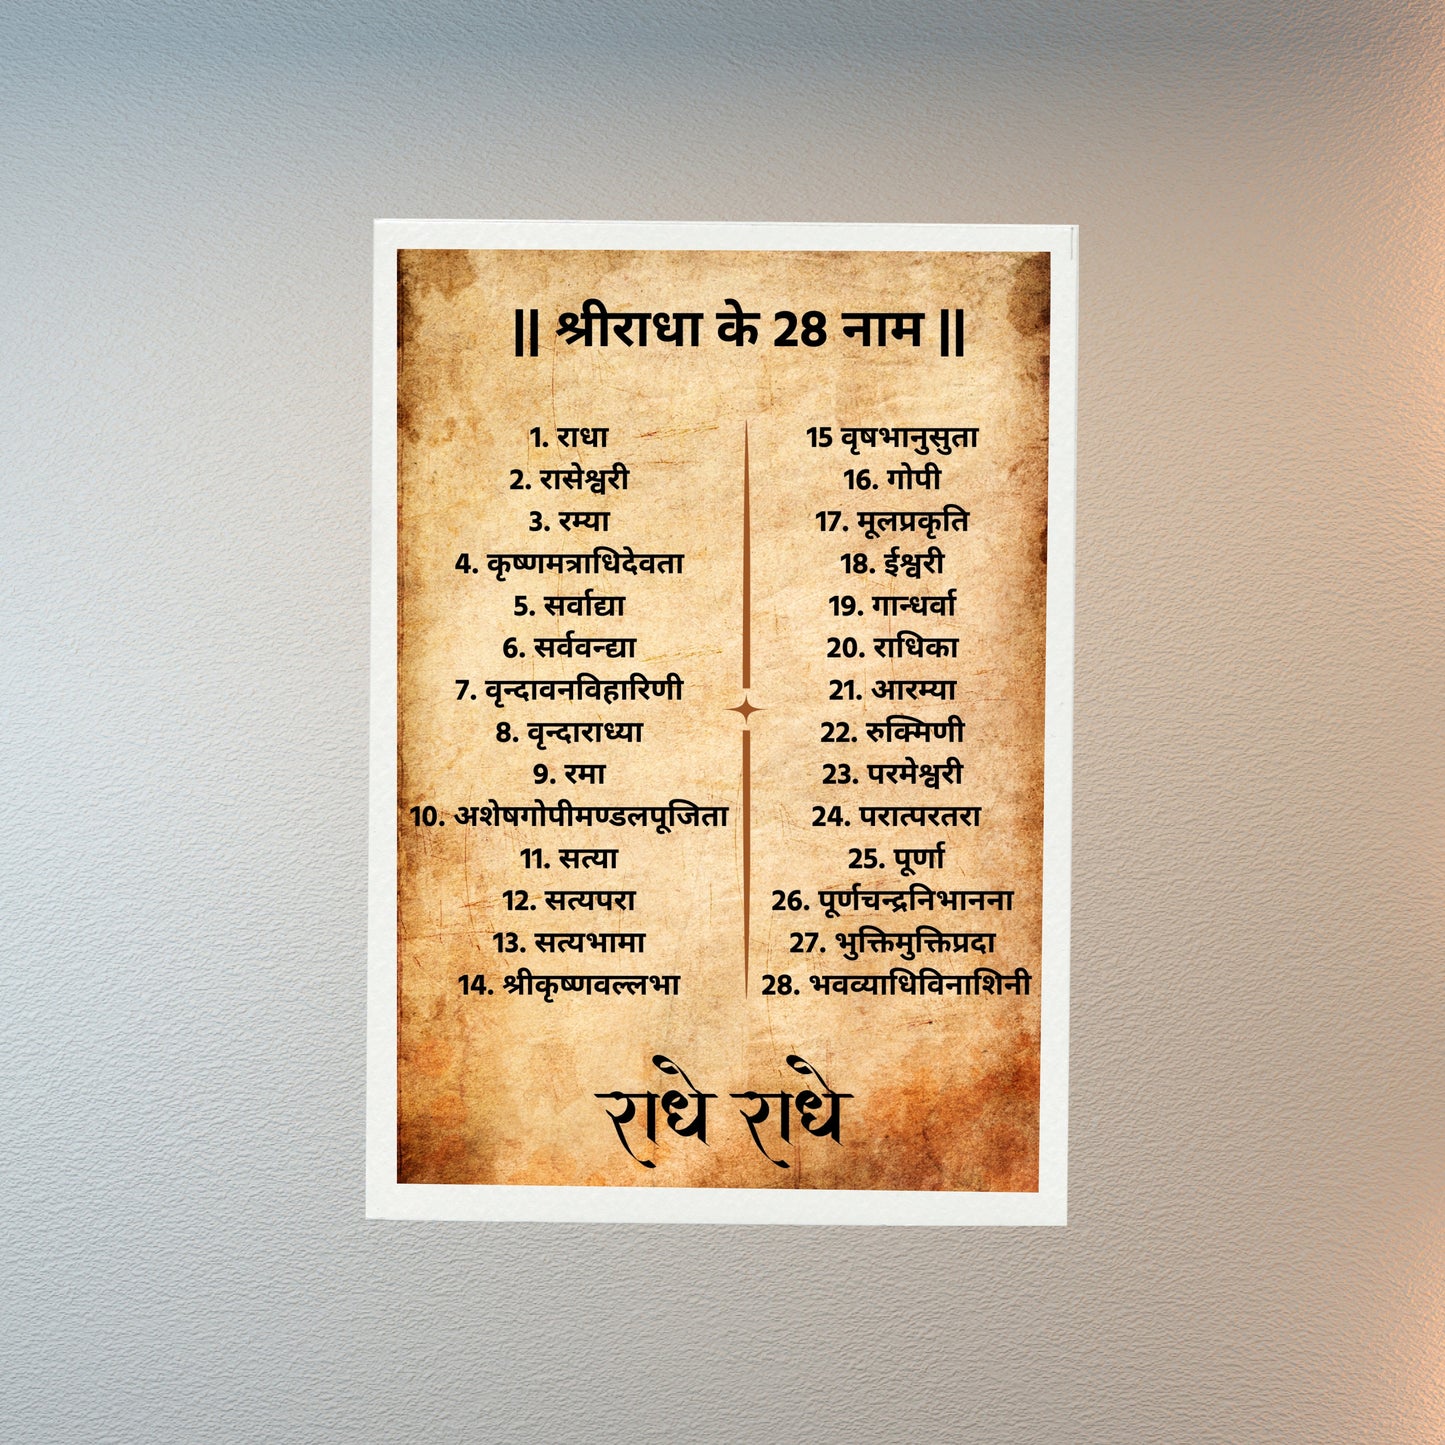 || श्रीराधा के 28 नाम ||
1. राधा
2. रासेश्वरी
3. रम्या
4. कृष्णमत्राधिदेवता
5. सर्वाद्या
6. सर्ववन्द्या
7. वृन्दावनविहारिणी
8. वृन्दाराध्या
9. रमा
10. अशेषगोपीमण्डलपूजिता
11. सत्या
12. सत्यपरा
13. सत्यभामा
14. श्रीकृष्णवल्लभा
15 वृषभानुसुता
16. गोपी
17. मूलप्रकृति
18. ईश्वरी
19. गान्धर्वा
20. राधिका
21. आरम्या
22. रुक्मिणी
23. परमेश्वरी
24. परात्परतरा
25. पूर्णा
26. पूर्णचन्द्रनिभानना
27. भुक्तिमुक्तिप्रदा
28. भवव्याधिविनाशिनी
राधे राधे